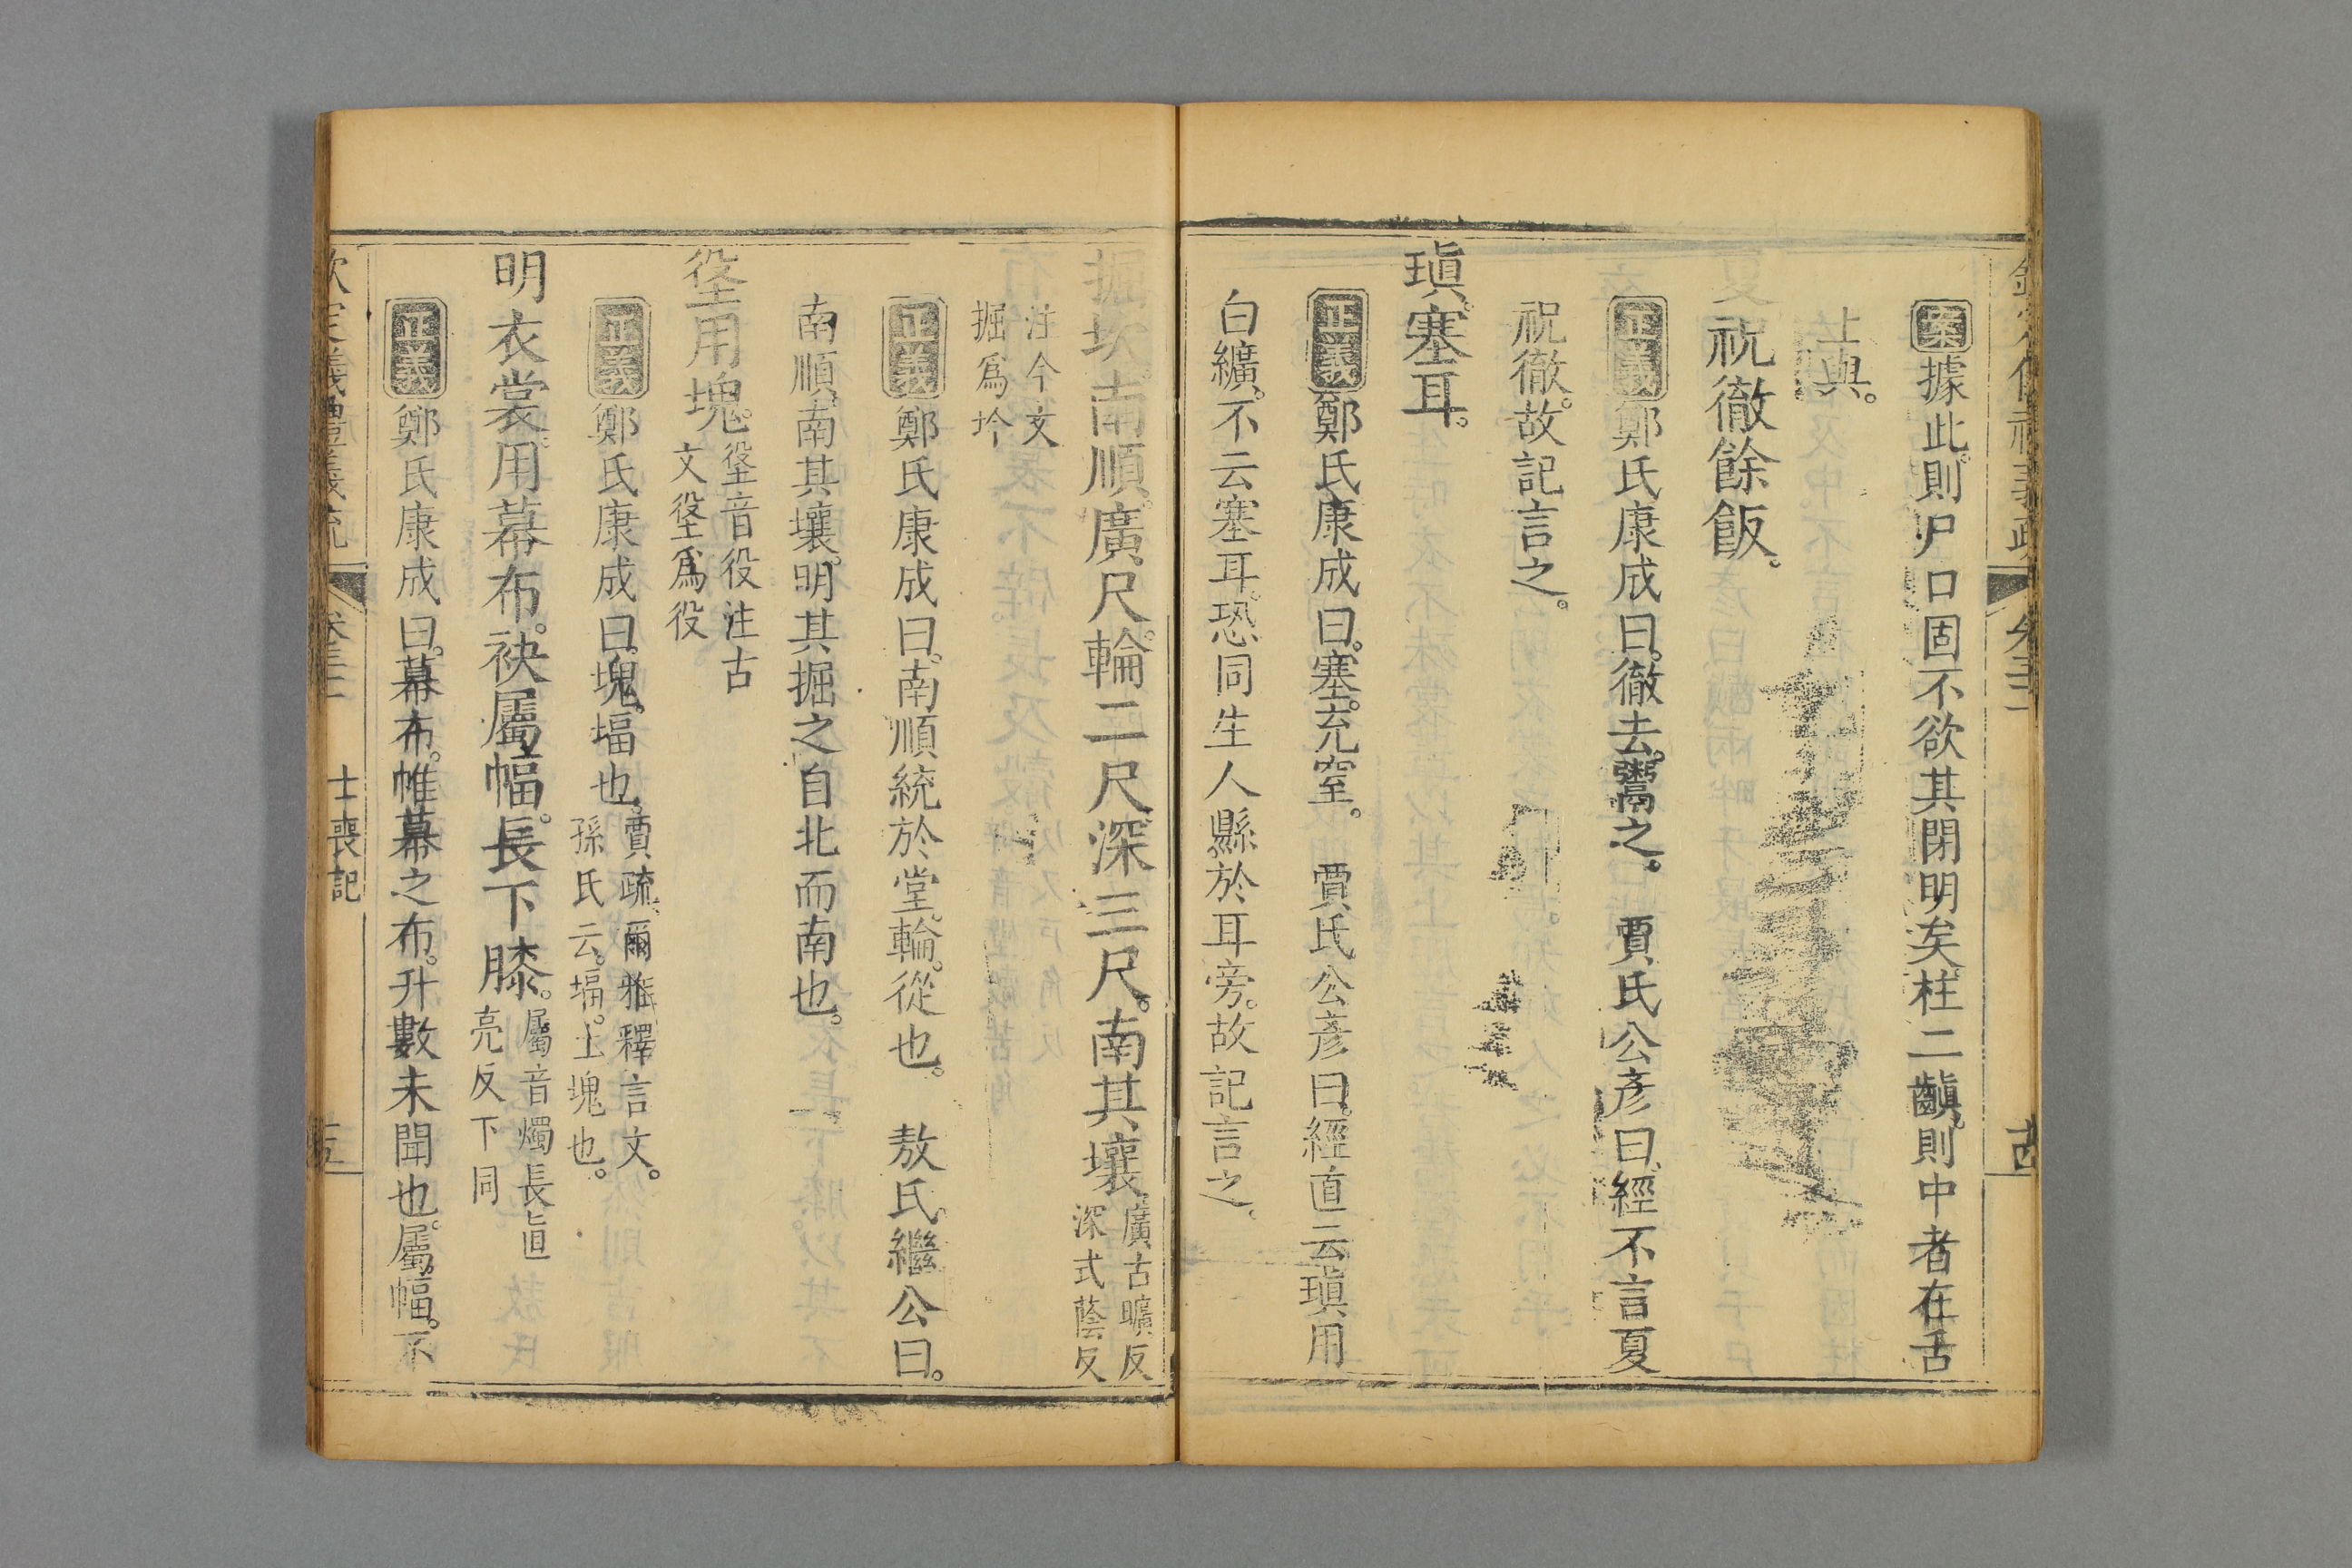 案據此則尸口固不欲其閉明矣柱二齻則中者在舌
上與。
祝徹餘飯。
正義鄭氏康成曰。徹去鬻之。 賈氏公彥曰。經不言夏
祝徹。故記言之。
瑱塞耳。
正義鄭氏康成曰。塞。充窒。 賈氏公彥曰。經直云瑱用
白纊。不云塞耳。恐同生人縣於耳旁。故記言之。
掘坎南順。廣尺。輪二尺。深三尺。南其壤。廣古曠反
深式蔭反
注今文
掘為坅
正義鄭氏康成曰。南順統於堂。輪。從也。 敖氏繼公曰。
南順。南其壤。明其掘之自北而南也。
垼用塊。垼音役注古
文垼為役
正義鄭氏康成曰。塊。堛也。賈疏。爾雅釋言文。
孫氏云。堛。土塊也。
明衣裳。用幕布。袂屬幅。長下膝。屬音燭長直
亮反下同
正義鄭氏康成曰。幕布。帷幕之布。升數未聞也。屬幅。不
欽定儀禮義疏 卷三十 士喪記